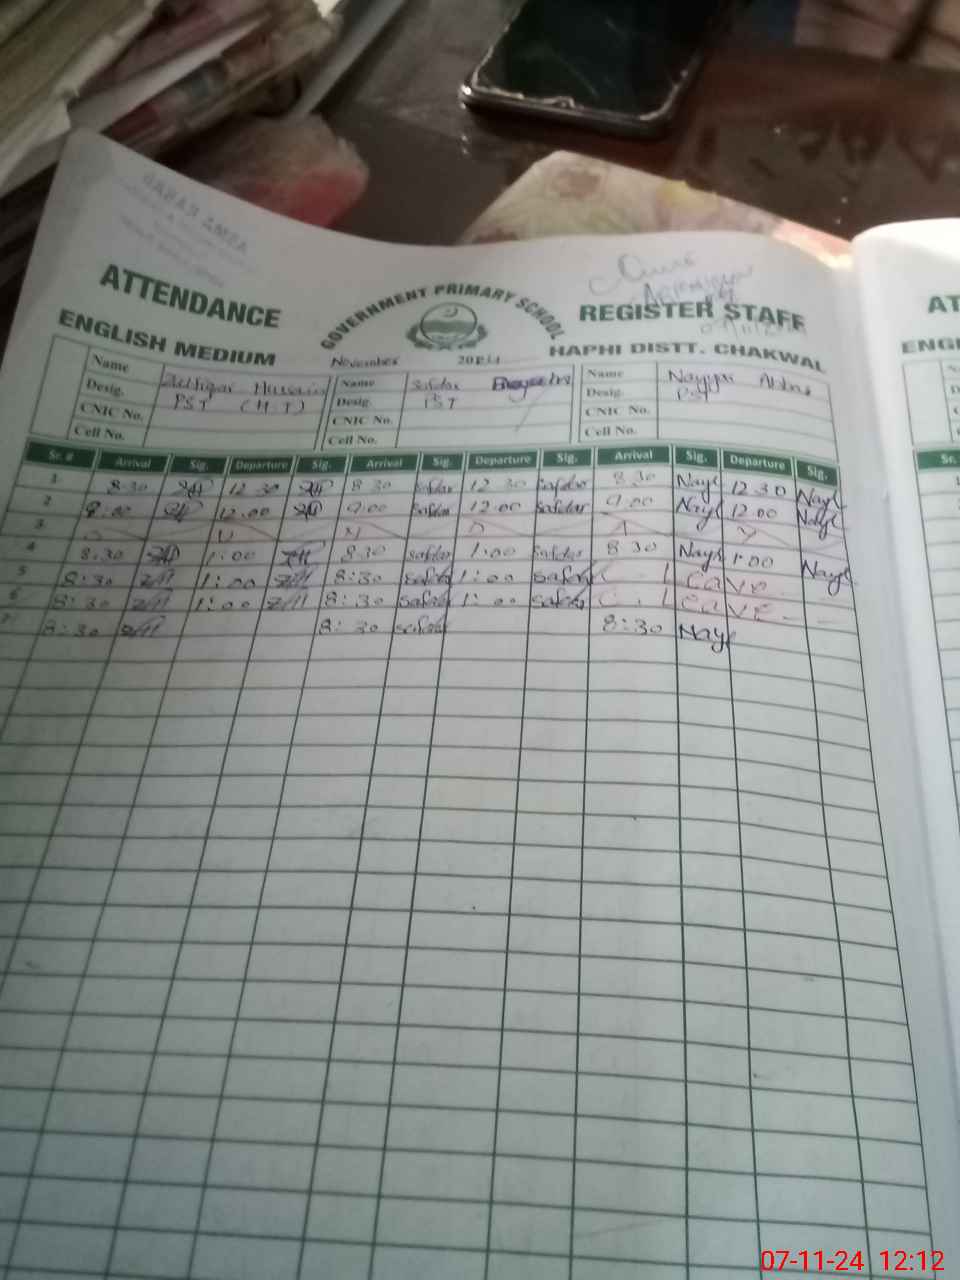 ATTENDANCE GOVERNMENT PRIMARY SCHOOL REGISTER STAFF
ENGLISH MEDIUM November 2024 HAPHI DISTT. CHAKWAL
Name Zulfiqar Hussain Name Safdar Name Nayyar Abbas
Desig. PST (H.T) Desig. PST Desig. PST
CNIC No. CNIC No. CNIC No.
Cell No. Cell No. Cell No.
Sr. # Arrival Sig. Departure Sig. Arrival Sig. Departure Sig. Arrival Sig. Departure Sig.
1 8.30 ZH 12.30 ZH 8.30 Safdar 12.30 Safdar 8.30 Nayy 12.30 Nayy
2 9.00 ZH 12.00 ZH 9.00 Safdar 12.00 Safdar 9.00 Nayy 12.00 Nayy
3 S U N D A Y
4 8.30 ZH 1.00 ZH 8.30 Safdar 1.00 Safdar 8.30 Nayy 1.00 Nayy
5 8:30 ZH 1:00 ZH 8:30 Safdar 1:00 Safdar C. Leave
6 8:30 ZH 1:00 ZH 8:30 Safdar 1:00 Safdar C. Leave
7 8:30 ZH 8:30 Safdar 8:30 Nayy
ATT
ENGL
Sr.
07-11-24 12:12